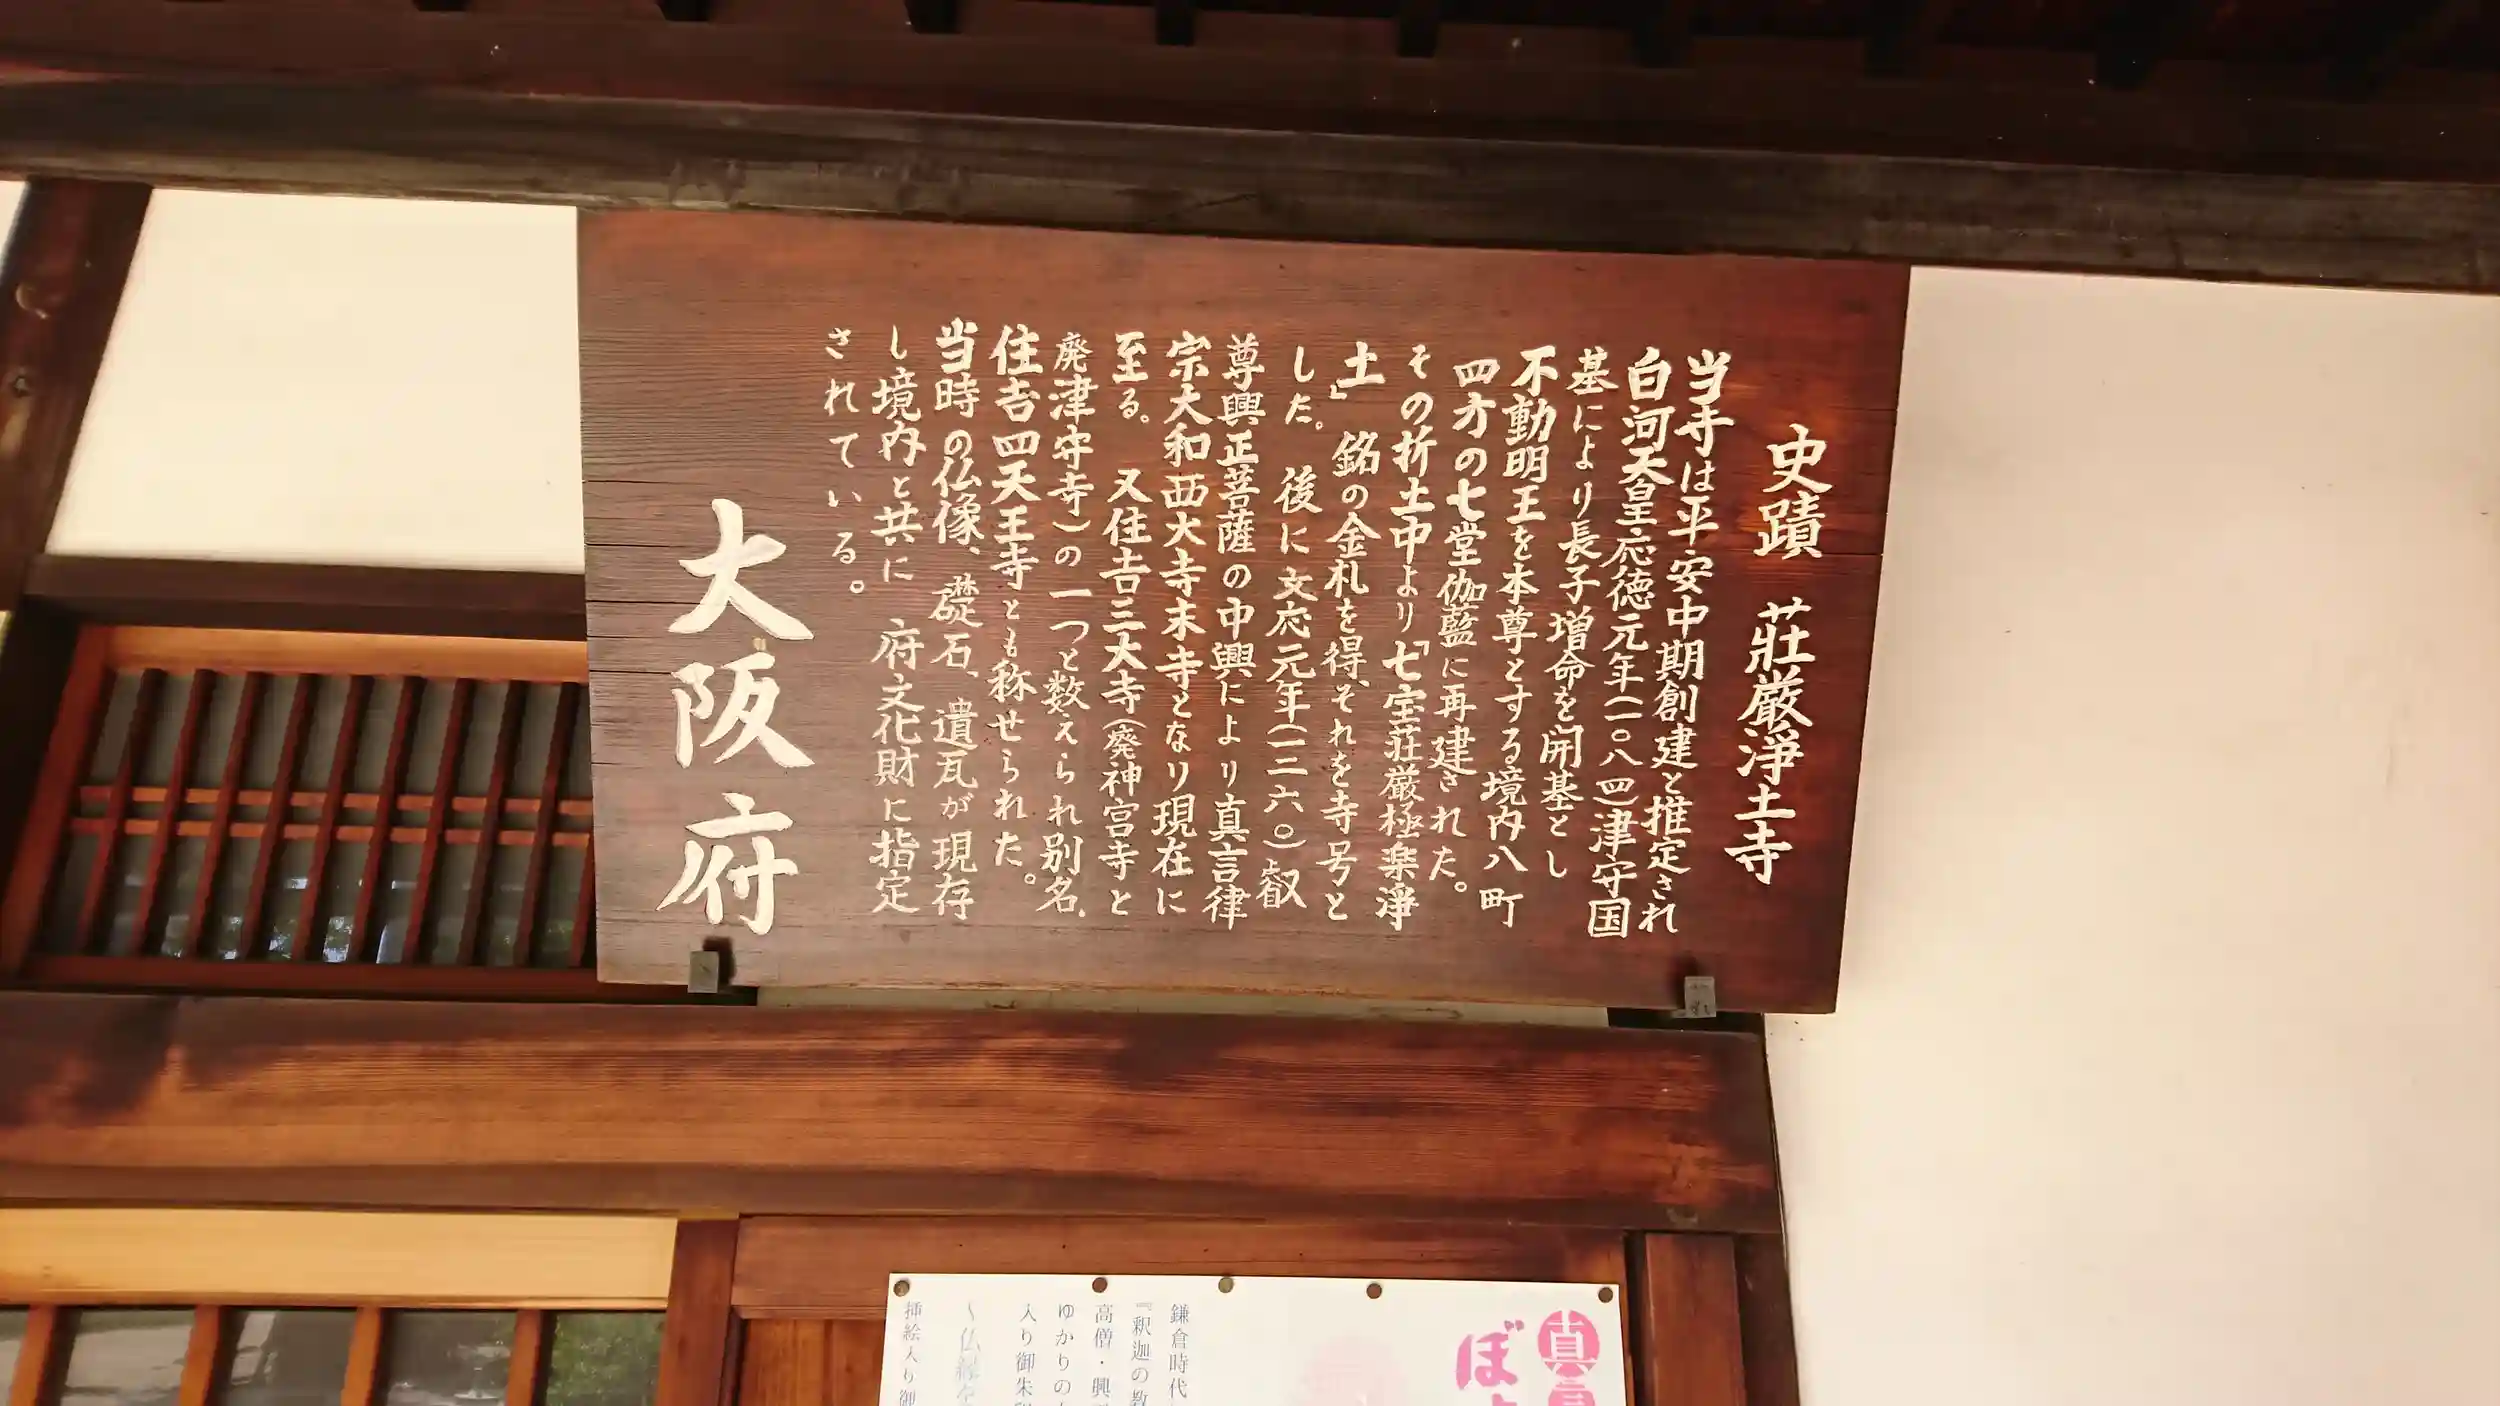 史蹟 荘厳浄土寺
当寺は平安中期創建と推定され
白河天皇応徳元年(一〇八四)津守国
基により長子増命を開基とし
不動明王を本尊とする境内八町
四方の七堂伽藍に再建された。
その折土中より「七宝荘厳極楽浄
土」銘の金札を得、それを寺号と
した。後に文応元年(一二六〇)叡
尊興正菩薩の中興により真言律
宗大和西大寺末寺となり現在に
至る。又住吉三大寺(廃神宮寺と
廃津守寺)の一つと数えられ別名、
住吉四天王寺とも称せられた。
当時の仏像、礎石、遺瓦が現存
し境内と共に 府文化財に指定
されている。
大阪府
真言
ぼ
鎌倉時代
『釈迦の教
高僧・興
ゆかりの
入り御朱
〜仏縁を
挿絵入り御